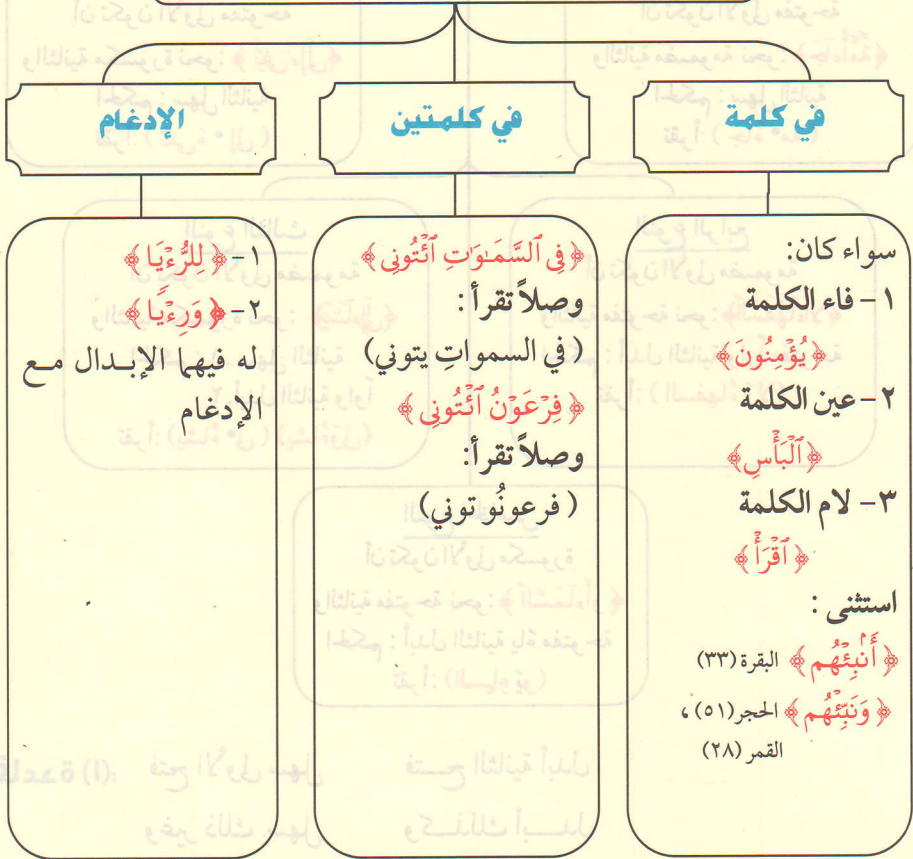 في كلمة
في كلمتين
الإدغام
سواء كان:
١- فاء الكلمة
﴿يُؤْمِنُونَ﴾
٢- عين الكلمة
﴿ٱلْبَأْسِ﴾
٣- لام الكلمة
﴿ٱقْرَأْ﴾
استثنى :
﴿أَنۢبِئْهُم﴾ البقرة (٣٣)
﴿وَنَبِّئْهُم﴾ الحجر (٥١)،
القمر (٢٨)
﴿فِى ٱلسَّمَـٰوَٰتِ ٱئْتُونِى﴾
وصلاً تقرأ :
(في السمواتِ يتوني)
﴿فِرْعَوْنُ ٱئْتُونِى﴾
وصلاً تقرأ:
(فرعونُو توني)
١- ﴿لِلرُّءْيَا﴾
٢- ﴿وَرِءْيًا﴾
له فيهما الإبــدال مــع
الإدغام